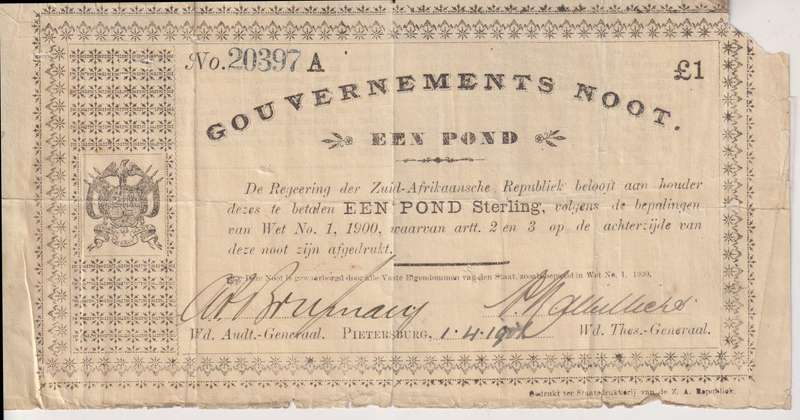 No. 20397 A
£1
GOUVERNEMENTS NOOT.
EEN POND
De Regeering der Zuid-Afrikaansche Republiek belooft aan houder
dezes te betalen EEN POND Sterling, volgens de bepalingen
van Wet No. 1, 1900, waarvan artt. 2 en 3 op de achterzijde van
deze noot zijn afgedrukt.
Deze Noot is gewaarborgd door alle Vaste Eigendommen van den Staat, zooals bepaald in Wet No. 1, 1900.
Wd. Audt.-Generaal. PIETERSBURG, 1.4.1901 Wd. Thes.-Generaal.
Gedrukt ter Staatsdrukkerij van de Z. A. Republiek